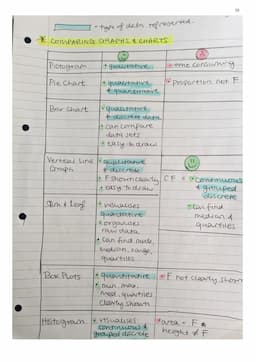 = type of data represented
* COMPARING GRAPHS & CHARTS
Pictogram
+ qualitative
* time consuming
Pie Chart
+ qualitative
& quantitative
* proportion not F
Bar Chart
+ qualitative
& discrete data
+ can compare
data sets
+ easy to draw
Vertical Line
Graphs
+ qualitative
& discrete
+ F shown clearly
+ easy to draw
CF =
+ continuous
& grouped
discrete
+ can find
median &
quartiles
Stem & Leaf
+ visualises
quantitative
+ organises
raw data
+ can find mode,
median, range,
quartiles
Box Plots
+ quantitative
+ min, max,
med, quartiles
clearly shown
* F not clearly shown
Histogram
+ visualises
continuous &
grouped discrete
* area = F &
height ≠ F